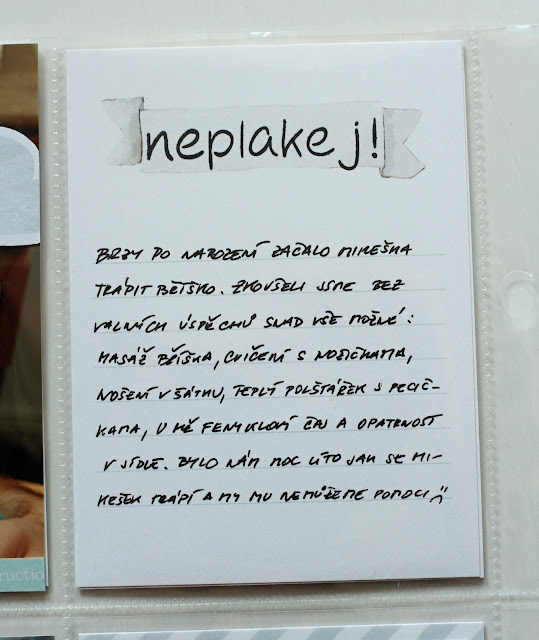 neplakej!
BRZY PO NAROZENÍ ZAČALO MIKEŠKA
TRÁPIT BŘÍŠKO. ZKOUŠELI JSME BEZ
VALNÝCH ÚSPĚCHŮ SNAD VŠE MOŽNÉ:
MASÁŽ BŘÍŠKA, CVIČENÍ S NOŽIČKAMA,
NOŠENÍ V ŠÁTKU, TEPLÝ POLŠTÁŘEK S PECIČ-
KAMA, U MĚ FENYKLOVÝ ČAJ A OPATRNOST
V JÍDLE. BYLO NÁM MOC LÍTO JAK SE MI-
KEŠEK TRÁPÍ A MY MU NEMŮŽEME POMOCI :(
ructio